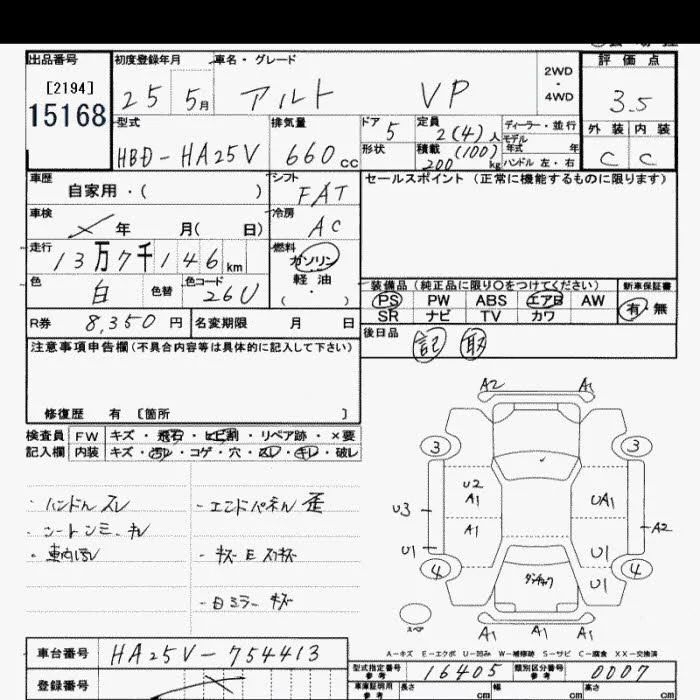 出品番号 初度登録年月 車名・グレード 評価点
[2194]
15168
25 5月 アルト VP 2WD・4WD 3.5
型式 排気量 ドア 定員 ディーラー・並行 外装 内装
HBD-HA25V 660cc 5 2(4)人 モデル年式 年 C C
形状 積載 (100) 200 kg ハンドル 左・右
車歴 シフト セールスポイント (正常に機能するものに限ります)
自家用・( ) FAT
車検 冷房
年 月( 日) AC
走行 燃料
13万7千146km ガソリン
軽油
( ・ )
色 色替 色コード
白 26U
装備品 (純正品に限り○をつけてください) 新車保証書
PS PW ABS エアB AW 有・無
SR ナビ TV カワ
R券 8,350円 名変期限 月 日
後日品 記 取
注意事項申告欄 (不具合内容等は具体的に記入して下さい)
修復歴 有 [箇所 ]
検査員 FW キズ・飛石・ヒビ割・リペア跡・×要
記入欄 内装 キズ・汚レ・コゲ・穴・スレ・キレ・破レ
・ハンドルスレ ・エンドパネル歪
・車内汚レ
A2 A1
3 3
U2
A1 UA1
U3
A1 A2
U1 U1
4 4
U1
スペア
A1 A1 A1
A-キズ E-エクボ U-凹み W-補修跡 S-サビ C-腐食 XX-交換済
車台番号 HA25V-754413
型式指定番号 参考 16405 類別区分番号 参考 0007
登録番号
車庫証明用 参考 長さ cm 幅 cm 高さ cm